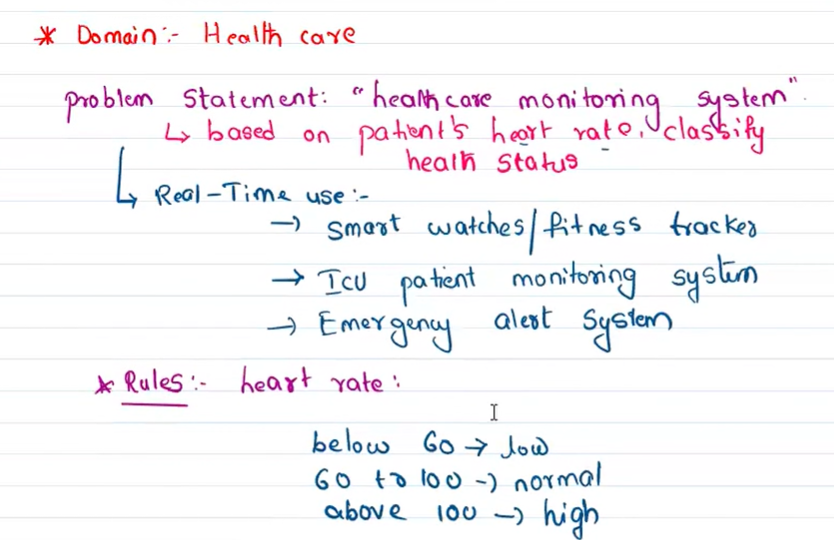 * Domain:- Health care
problem Statement: "healthcare monitoring system".
↳ based on patient's heart rate, classify
health status
↳ Real-Time use:-
→ Smart watches/fitness tracker
→ ICU patient monitoring system
→ Emergency alert System
* Rules:- heart rate:
below 60 → low
60 to 100 → normal
above 100 → high